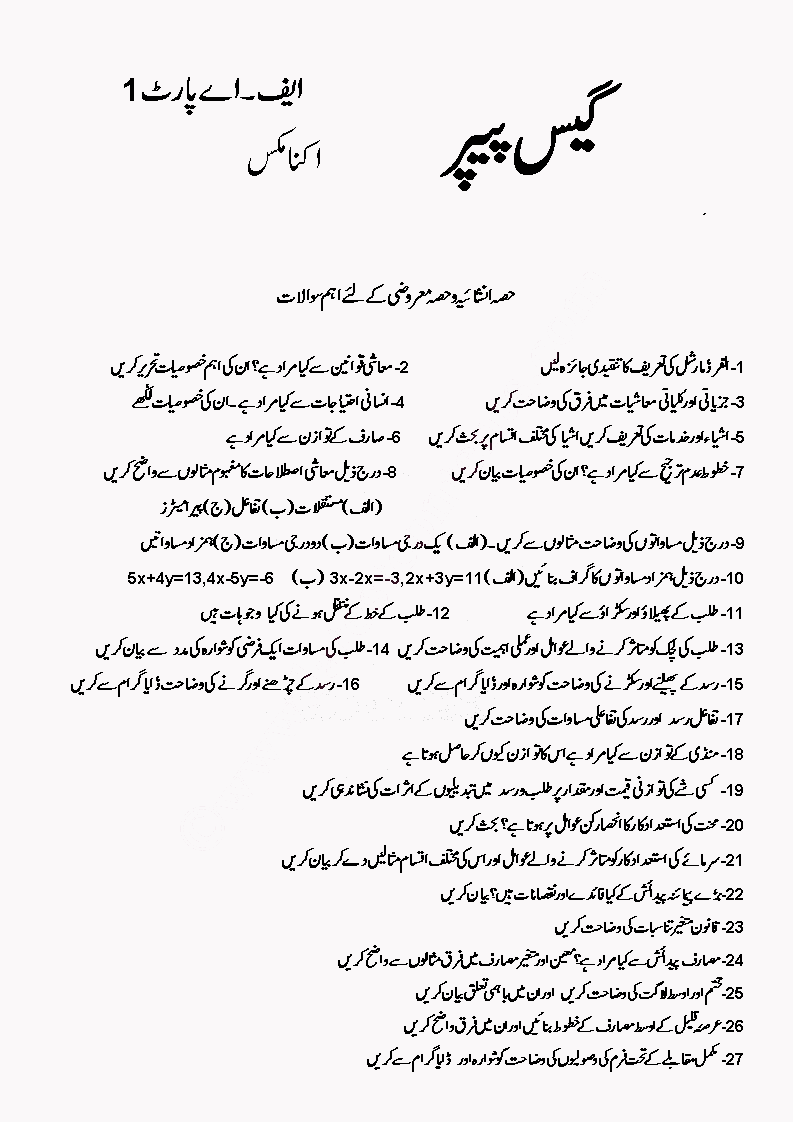 گیس پیپر
ایف۔اے پارٹ 1
اکنامکس
حصہ انشائیہ وحصہ معروضی کے لئے اہم سوالات
1- الفرڈ مارشل کی تعریف کا تنقیدی جائزہ لیں 2- معاشی قوانین سے کیا مراد ہے؟ ان کی اہم خصوصیات تحریر کریں
3- جزیاتی اور کلیاتی معاشیات میں فرق کی وضاحت کریں 4- انسانی احتیاجات سے کیا مراد ہے۔ان کی خصوصیات لکھے
5- اشیاء اور خدمات کی تعریف کریں اشیا کی مختلف اقسام پر بحث کریں 6- صارف کے توازن سے کیا مراد ہے
7- خطوط عدم ترجیح سے کیا مراد ہے؟ ان کی خصوصیات بیان کریں 8- درج ذیل معاشی اصطلاحات کا مفہوم مثالوں سے واضح کریں
(الف) مستقلات (ب) تفاعل (ج) پیرامیٹرز
9- درج ذیل مساواتوں کی وضاحت مثالوں سے کریں۔(الف) یک درجی مساوات (ب) دو درجی مساوات (ج) ہمزاد مساواتیں
10- درج ذیل ہمزاد مساواتوں کا گراف بنائیں (الف) 3x-2x=-3,2x+3y=11 (ب) 5x+4y=13,4x-5y=-6
11- طلب کے پھیلاؤ اور سکڑاؤ سے کیا مراد ہے 12- طلب کے خط کے منتقل ہونے کی کیا وجوہات ہیں
13- طلب کی لچک کو متاثر کرنے والے عوامل اور عملی اہمیت کی وضاحت کریں 14- طلب کی مساوات ایک فرضی گوشوارہ کی مدد سے بیان کریں
15- رسد کے پھیلنے اور سکڑنے کی وضاحت گوشوارہ اور ڈایا گرام سے کریں 16- رسد کے چڑھنے اور گرنے کی وضاحت ڈایا گرام سے کریں
17- تفاعل رسد اور رسد کی تفاعلی مساوات کی وضاحت کریں
18- منڈی کے توازن سے کیا مراد ہے اس کا توازن کیوں کر حاصل ہوتا ہے
19- کسی شے کی توازنی قیمت اور مقدار پر طلب ورسد میں تبدیلیوں کے اثرات کی نشاندہی کریں
20- محنت کی استعداد کار کا انحصار کن عوامل پر ہوتا ہے؟ بحث کریں
21- سرمائے کی استعداد کار کو متاثر کرنے والے عوامل اور اس کی مختلف اقسام مثالیں دے کر بیان کریں
22- بڑے پیمانہ پیدائش کے کیا فائدے اور نقصانات ہیں؟ بیان کریں
23- قانون متغیر تناسبات کی وضاحت کریں
24- مصارف پیدائش سے کیا مراد ہے؟ معین اور متغیر مصارف میں فرق مثالوں سے واضح کریں
25- مختتم اور اوسط لاگت کی وضاحت کریں اور ان میں باہمی تعلق بیان کریں
26- عرصہ قلیل کے اوسط مصارف کے خطوط بنائیں اور ان میں فرق واضح کریں
27- مکمل مقابلے کے تحت فرم کی وصولیوں کی وضاحت گوشوارہ اور ڈایا گرام سے کریں